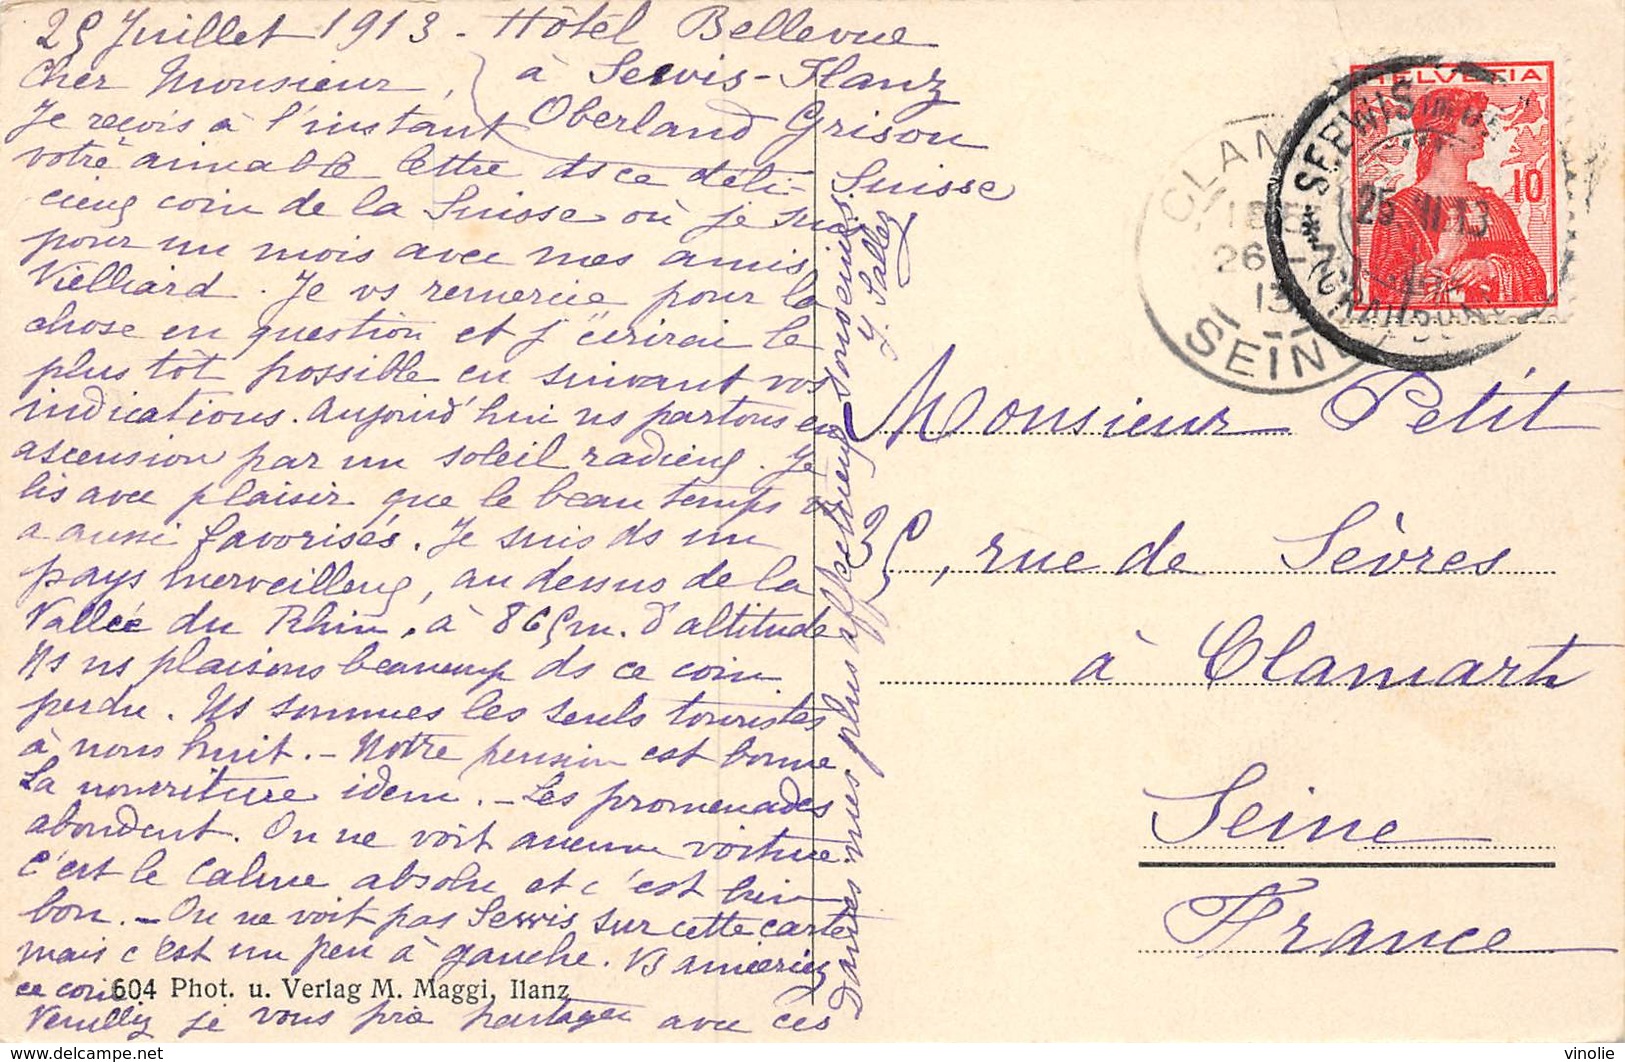 25 Juillet 1913 - Hôtel Bellevue
à Serwis-Ilanz
Oberland Grison
Suisse
Cher Monsieur,
Je reçois à l'instant
votre aimable lettre ds ce déli-
cieux coin de la Suisse où je suis
pour un mois avec mes amis
Vielliard. Je vs remercie pour la
chose en question et j'écrirai le
plus tôt possible en suivant vos
indications. Aujourd'hui ns partons en
ascension par un soleil radieux. Je
lis avec plaisir que le beau temps vs
a aussi favorisés. Je suis ds un
pays merveilleux, au dessus de la
Vallée du Rhin, à 865 m. d'altitude
Ns ns plaisons beaucoup ds ce coin
perdu. Ns sommes les seuls touristes
à nous huit. - Notre pension est bonne
La nourriture idem. - Les promenades
abondent. On ne voit aucune voiture
c'est le calme absolu et c'est bien
bon. - On ne voit pas Serwis sur cette carte
mais c'est un peu à gauche. Vs aimeriez
ce coin
Veuillez je vous prie partager avec ces
Dames mes plus affectueux souvenirs
J. Sallez
604 Phot. u. Verlag M. Maggi, Ilanz
HELVETIA
10
SEEWIS
25 VII 13
(GRAUBÜND
CLAM
26 - 
13
SEINE
Monsieur Petit
35, rue de Sèvres
à Clamart
Seine
France
delcampe.net
vinolie